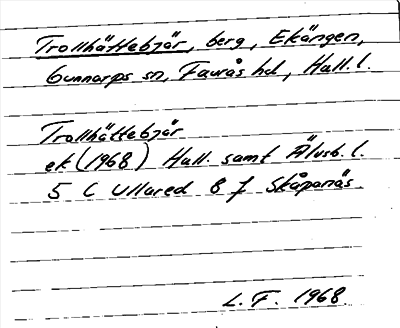 Trollhättebjär, berg, Ekängen,
Gunnarps sn, Faurås hd, Hall. l.
Trollhättebjär
ek (1968) Hall. samt Älvsb. l.
5 C Ullared 8 f Skåpanäs
L. F. 1968.